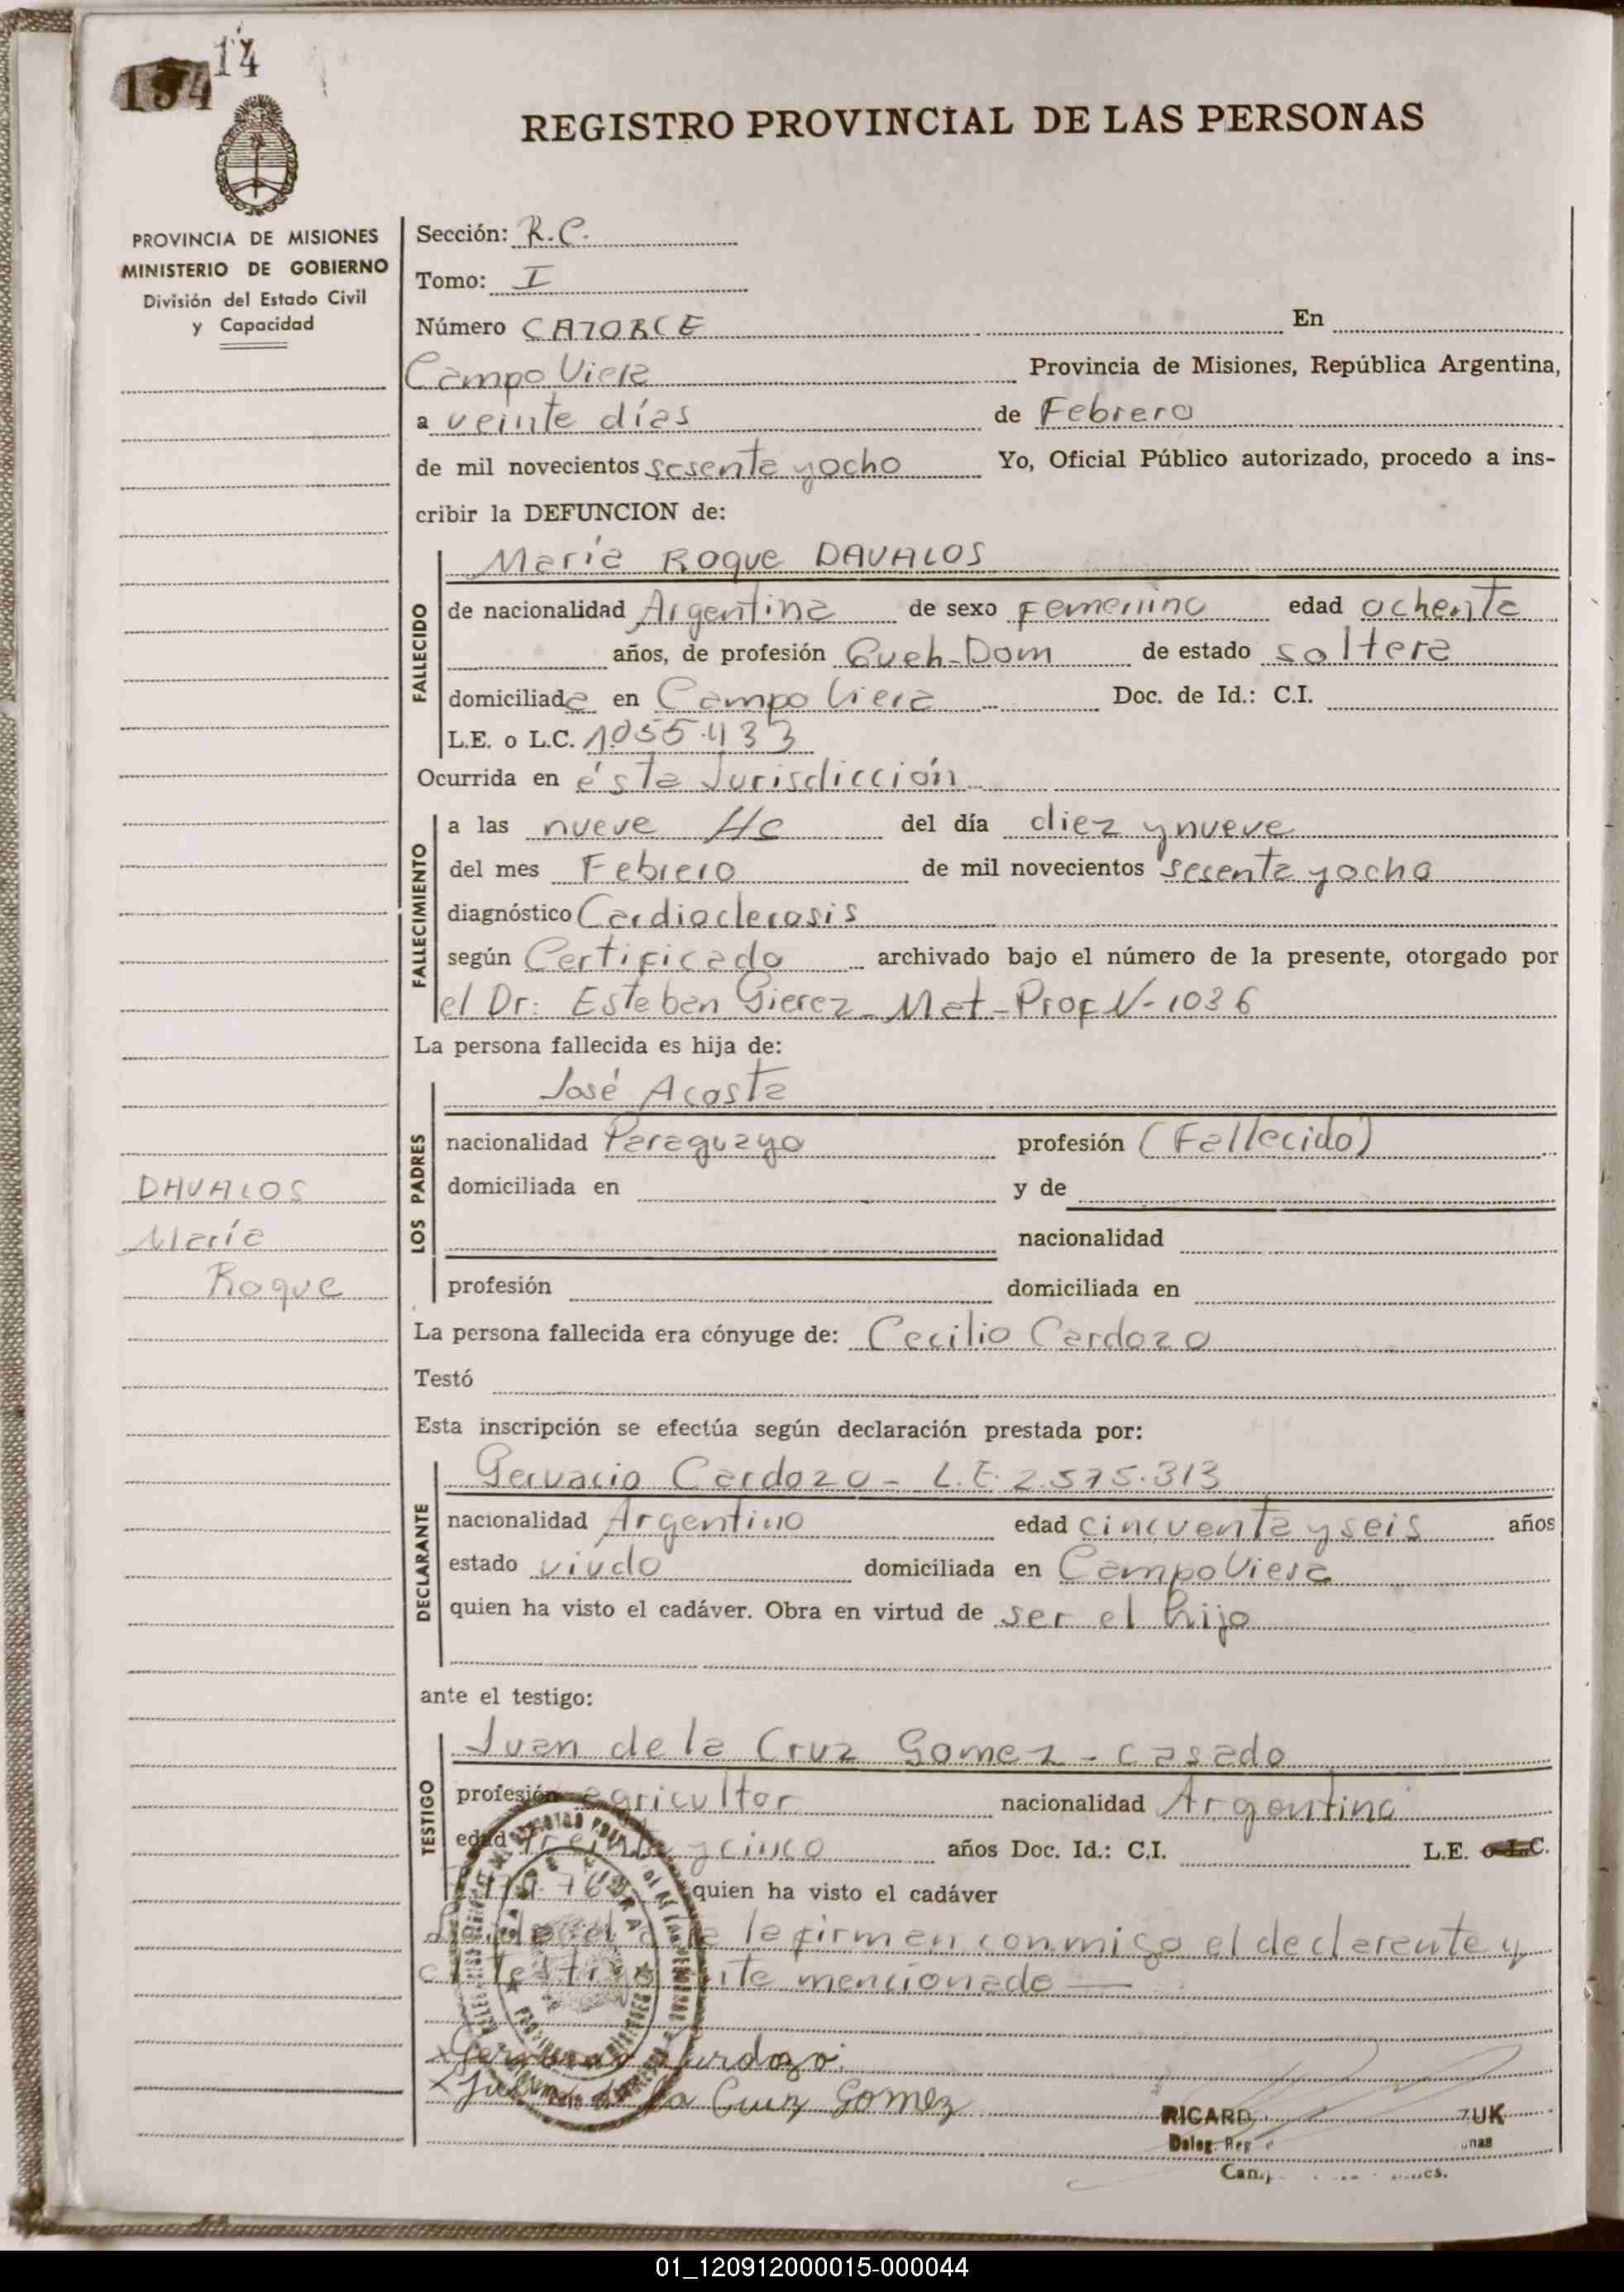 14
194
REGISTRO PROVINCIAL DE LAS PERSONAS
PROVINCIA DE MISIONES
MINISTERIO DE GOBIERNO
División del Estado Civil
y Capacidad
Sección: R.C.
Tomo: I
Número CATORCE En
Campo Viera Provincia de Misiones, República Argentina,
a veinte días de Febrero
de mil novecientos sesenta y ocho Yo, Oficial Público autorizado, procedo a ins-
cribir la DEFUNCION de:
FALLECIDO
María Roque DAVALOS
de nacionalidad Argentina de sexo Femenino edad ochenta
años, de profesión Queh-Dom de estado soltera
domiciliada en Campo Viera Doc. de Id.: C.I.
L.E. o L.C. 1.055.433
Ocurrida en ésta Jurisdicción
FALLECIMIENTO
a las nueve Hs del día diez y nueve
del mes Febrero de mil novecientos sesenta y ocho
diagnóstico Cardioclerosis
según Certificado archivado bajo el número de la presente, otorgado por
el Dr: Esteban Gierez - Mat - Prof N- 1036
La persona fallecida es hija de:
LOS PADRES
José Acosta
nacionalidad Paraguayo profesión (Fallecido)
domiciliada en y de
nacionalidad
profesión domiciliada en
DAVALOS
María
Roque
La persona fallecida era cónyuge de: Cecilio Cardozo
Testó
Esta inscripción se efectúa según declaración prestada por:
DECLARANTE
Gervacio Cardozo - L.E. 2.575.313
nacionalidad Argentino edad cincuenta y seis años
estado viudo domiciliada en Campo Viera
quien ha visto el cadáver. Obra en virtud de ser el hijo
ante el testigo:
TESTIGO
Juan de la Cruz Gomez - casado
profesión agricultor nacionalidad Argentino
edad treinta y cinco años Doc. Id.: C.I. L.E. o L.C.
quien ha visto el cadáver
la firman conmigo el declarante y
el testigo mencionado
Gervacio Cardozo
Juan de la Cruz Gomez
RICARD ZUK
Deleg. Reg
01_120912000015-000044